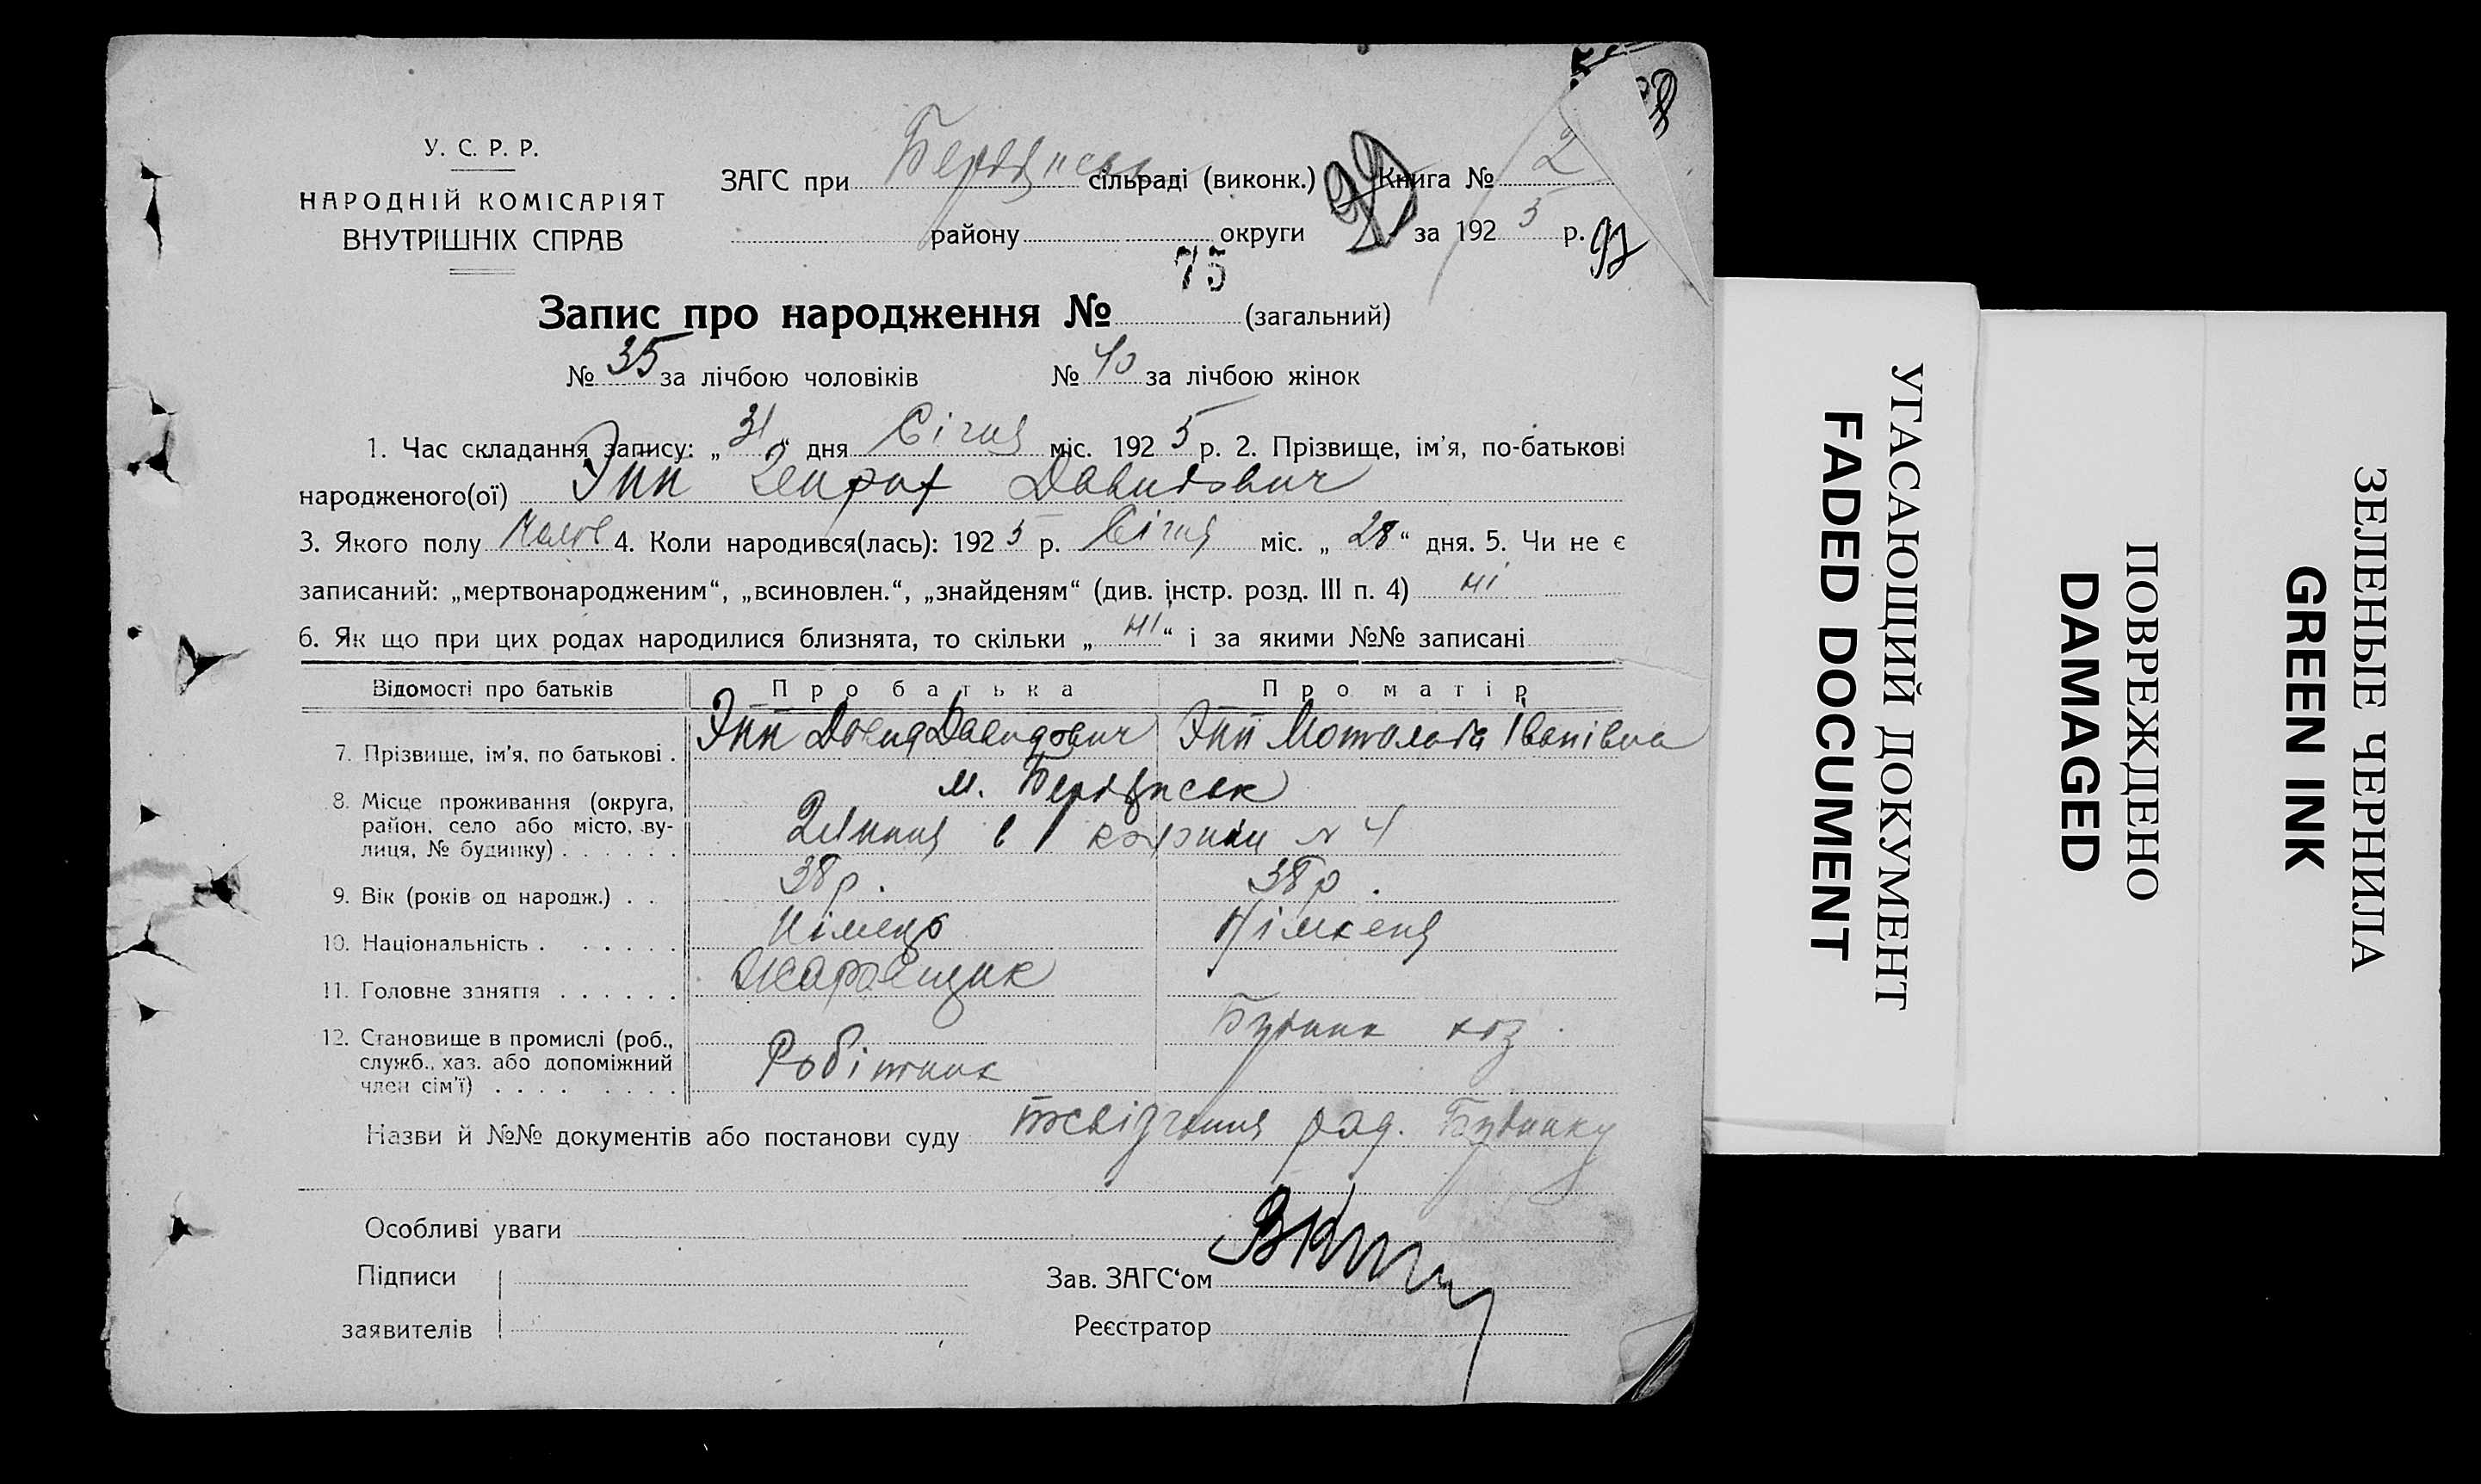 У. С. Р. Р.
НАРОДНІЙ КОМІСАРІЯТ
ВНУТРІШНІХ СПРАВ
ЗАГС при Бердянськ сільраді (виконк.) Книга № 2
району округи за 1925 р.
99
97
75
Запис про народження № (загальний)
№ 35 за лічбою чоловіків № 40 за лічбою жінок
1. Час складання запису: „31“ дня Січня міс. 1925 р. 2. Прізвище, ім’я, по-батькові
народженого(ої) Эпп Генрих Давидович
3. Якого полу Чолов 4. Коли народився(лась): 1925 р. Січня міс. „28“ дня. 5. Чи не є
записаний: „мертвонародженим“, „всиновлен.“, „знайденям“ (див. інстр. розд. III п. 4) ні
6. Як що при цих родах народилися близнята, то скільки „ні“ і за якими №№ записані
Відомості про батьків Про батька Про матір
7. Прізвище, ім’я, по батькові . Эпп Давид Давидович Эпп Іванівна
8. Місце проживання (округа, район, село або місто, вулиця, № будинку) . . . . . . м. Бердянськ
в № 4
9. Вік (років од народж.) . . 38 р. 38 р.
10. Національність . . . . . . Німець Німкеня
11. Головне заняття . . . . . .
12. Становище в промислі (роб., служб., хаз. або допоміжний член сім’ї) . . . . . . . . Робітник
Назви й №№ документів або постанови суду род. Будинку
Особливі уваги
Підписи
заявителів
Зав. ЗАГС‘ом
Реєстратор
УГАСАЮЩИЙ ДОКУМЕНТ
FADED DOCUMENT
ПОВРЕЖДЕНО
DAMAGED
ЗЕЛЕНЫЕ ЧЕРНИЛА
GREEN INK